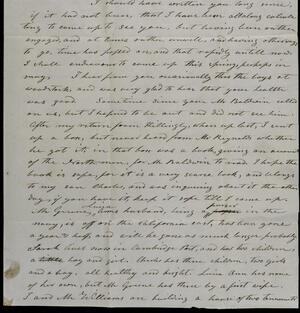 I should have written you long since,
if it had not been, that I have been calculating
to come up to see you. but having been often
engaged, and at times rather unwell, and having otherwise
to go, time has passed on, and that rapidly untill now.
I shall endeavour to come up this spring, perhaps in
may. I hear from you occasionally thro the boys at
Woodstock, and was very glad to hear that your health
was good. Sometime since your Mr Baldwin called
on us, but I happened to be out and did not see him.
After my return from, when up last, I sent
up a box, but never heard from Mr Reynolds whether
he got it. in that box was a book, giving an account
of the Northmen, for Mr Baldwin to read. I hope the
book is safe, for it is a very scarce book, and belongs
to my son Charles, and was enquiring about it the other
day, if you have it keep it safe till I come up.
Mr Greene, Lucia Anns husband, being purser in the
navy, is off on the California coast, has been gone
a year & half, and will be gone as much longer probably
Sarah Ann is now in Cambridge Port, and has two children,
a boy and girl. Charles has three children, two girls
and a boy, all healthy and bright. Lucia Ann has none
of her own, but Mr Greene has three by a first wife.
I and Mr Williams are building a house of two tenements